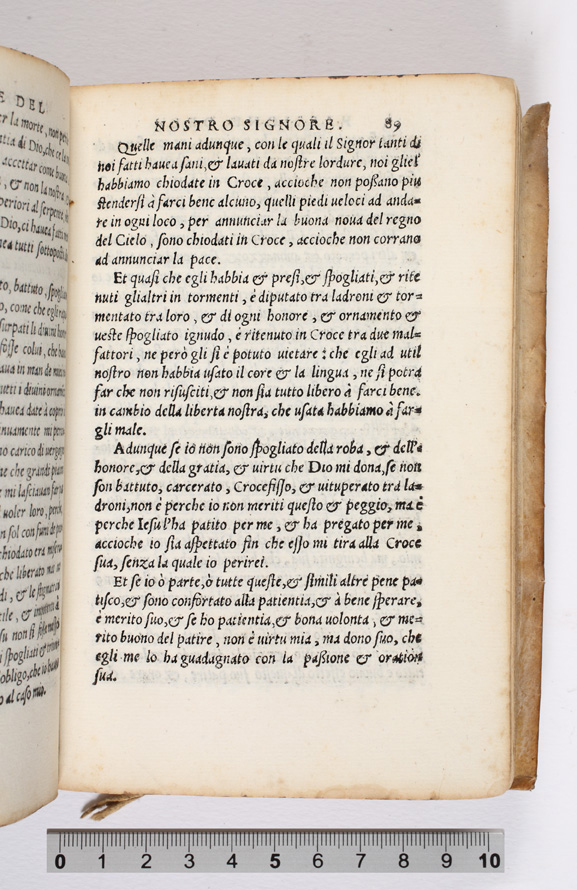 E DEL
er la morte, non
ntia di Dio, che
accettar come
, & non la nostra
periori al serpente
Dio, ci haueа fatti
nea tutti sottoposti
to, battuto, spogliato
o, come che egli
surpati li diuini honori
fosse colui, che
haua in man de
uetti i diuini ornamenti
haueа date à coprir
nuamente mi
no carico di
ne che grandi
e mi lasciauan far
uoler loro, perche
on sol con funi
chiodato era
che liberato
di, & le
tile, &
su non si
i spogliati &
obligo, che io
o al caso mio.
NOSTRO SIGNORE. 89
Quelle mani adunque, con le quali il Signor tanti di
noi fatti hauea sani, & lauati da nostre lordure, noi gliel'
habbiamo chiodate in Croce, accioche non poßano piu
stendersi à farci bene alcuno, quelli piedi ueloci ad anda=
re in ogni loco, per annunciar la buona noua del regno
del Cielo, sono chiodati in Croce, accioche non corrano
ad annunciar la pace.
Et quasi che egli habbia & presi, & spogliati, & rite
nuti glialtri in tormenti, è diputato tra ladroni & tor=
mentato tra loro, & di ogni honore, & ornamento &
ueste spogliato ignudo, è ritenuto in Croce tra due mal=
fattori, ne però gli si è potuto uietare: che egli ad util
nostro non habbia usato il core & la lingua, ne si potrà
far che non risusciti, & non sia tutto libero à farci bene.
in cambio della liberta nostra, che usata habbiamo à far=
gli male.
Adunque se io non sono spogliato della roba, & dell'
honore, & della gratia, & uirtu che Dio mi dona, se non
son battuto, carcerato, Crocefisso, & uituperato tra la=
droni, non è perche io non meriti questo & peggio, ma è
perche Iesu l'ha patito per me, & ha pregato per me,
accioche io sia aspettato fin che esso mi tira alla Croce
sua, senza la quale io perirei.
Et se io ò parte, ò tutte queste, & simili altre pene pa=
tisco, & sono confortato alla patientia, & à bene sperare,
è merito suo, & se ho patientia, & bona uolonta, & me=
rito buono del patire, non è uirtu mia, ma dono suo, che
egli me lo ha guadagnato con la paßione & oration
sua.
0 1 2 3 4 5 6 7 8 9 10